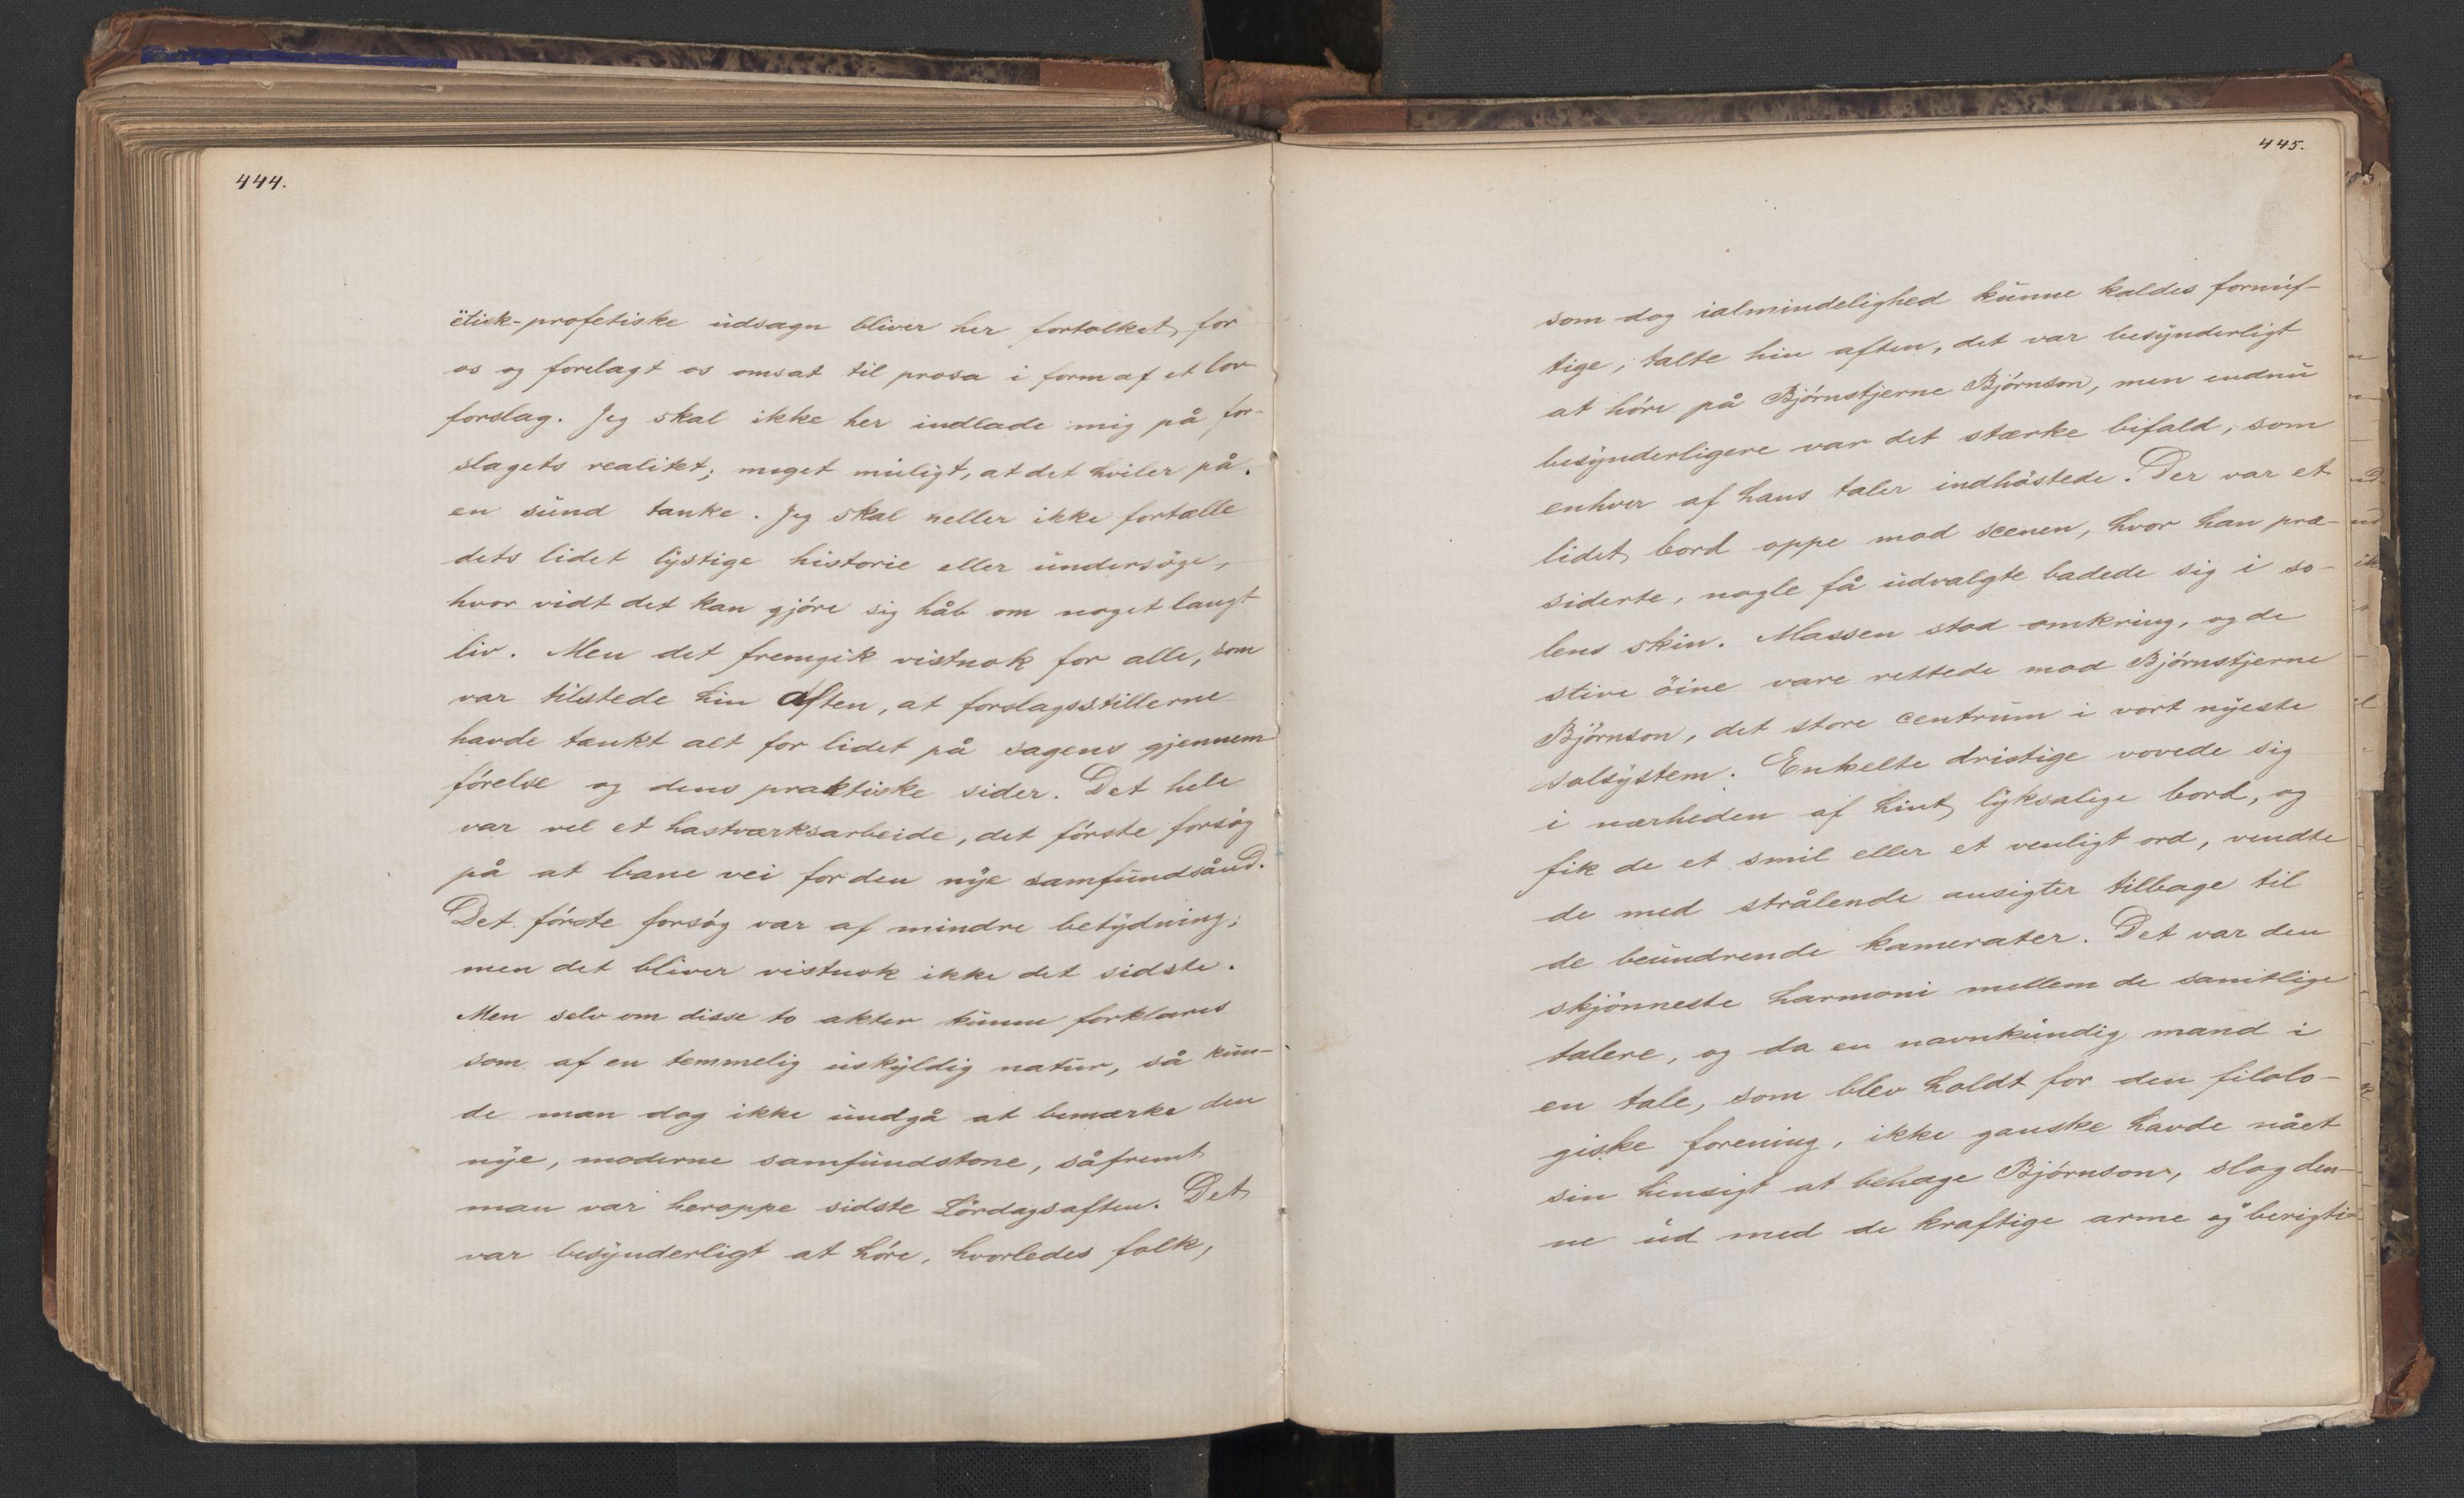 444.
ëtisk-profetiske udsagn bliver her fortolket for
os og forelagt os omsat til prosa i form af et lov
forslag. Jeg skal ikke her indlade mig på for-
slagets realitet; meget muligt, at det hviler på
en sund tanke. Jeg skal heller ikke fortælle
dets lidet lystige historie eller undersöge,
hvor vidt det kan gjöre sig håb om noget langt
liv. Men det fremgik vistnok for alle, som
var tilstede hin Aften, at forslagsstillerne
havde tænkt alt for lidet på sagens gjennem
förelse og dens praktiske sider. Det hele
var vel et hastværksarbeide, det förste forsög
på at bane vei for den nye samfundsånd.
Det förste forsög var af mindre betydning;
men det bliver vistnok ikke det sidste.
Men selv om disse to akter kunne forklares
som af en temmelig uskyldig natur, så kun-
de man dog ikke undgå at bemærke den
nye, moderne samfundstone, såfremt
man var heroppe sidste Lördagsaften. Det
var besynderligt at höre, hvorledes folk,
445.
som dog ialmindelighed kunne kaldes fornúf-
tige, talte hin aften, det var besynderligt
at höre på Björnstjerne Björnson, men endnu
besynderligere var det stærke bifald, som
enhver af hans taler indhöstede. Der var et
lidet bord oppe mod scenen, hvor han præ-
siderte, nogle få udvalgte badede sig i so-
lens skin. Massen stod omkring, og de
stive öine vare rettede mod Björnstjerne
Björnson, det store centrum i vort nyeste
solsystem. Enkelte dristige vovede sig
i nærheden af hint lyksalige bord, og
fik de et smil eller et venligt ord, vendte
de med strålende ansigter tilbage til
de beundrende kamerater. Det var den
skjönneste harmoni mellem de samtlige
talere, og da en navnkundig mand i
en tale, som blev holdt for den filolo-
giske forening, ikke ganske havde nået
sin hensigt at behage Björnson, slog den-
ne ud med de kraftige arme og berigti-